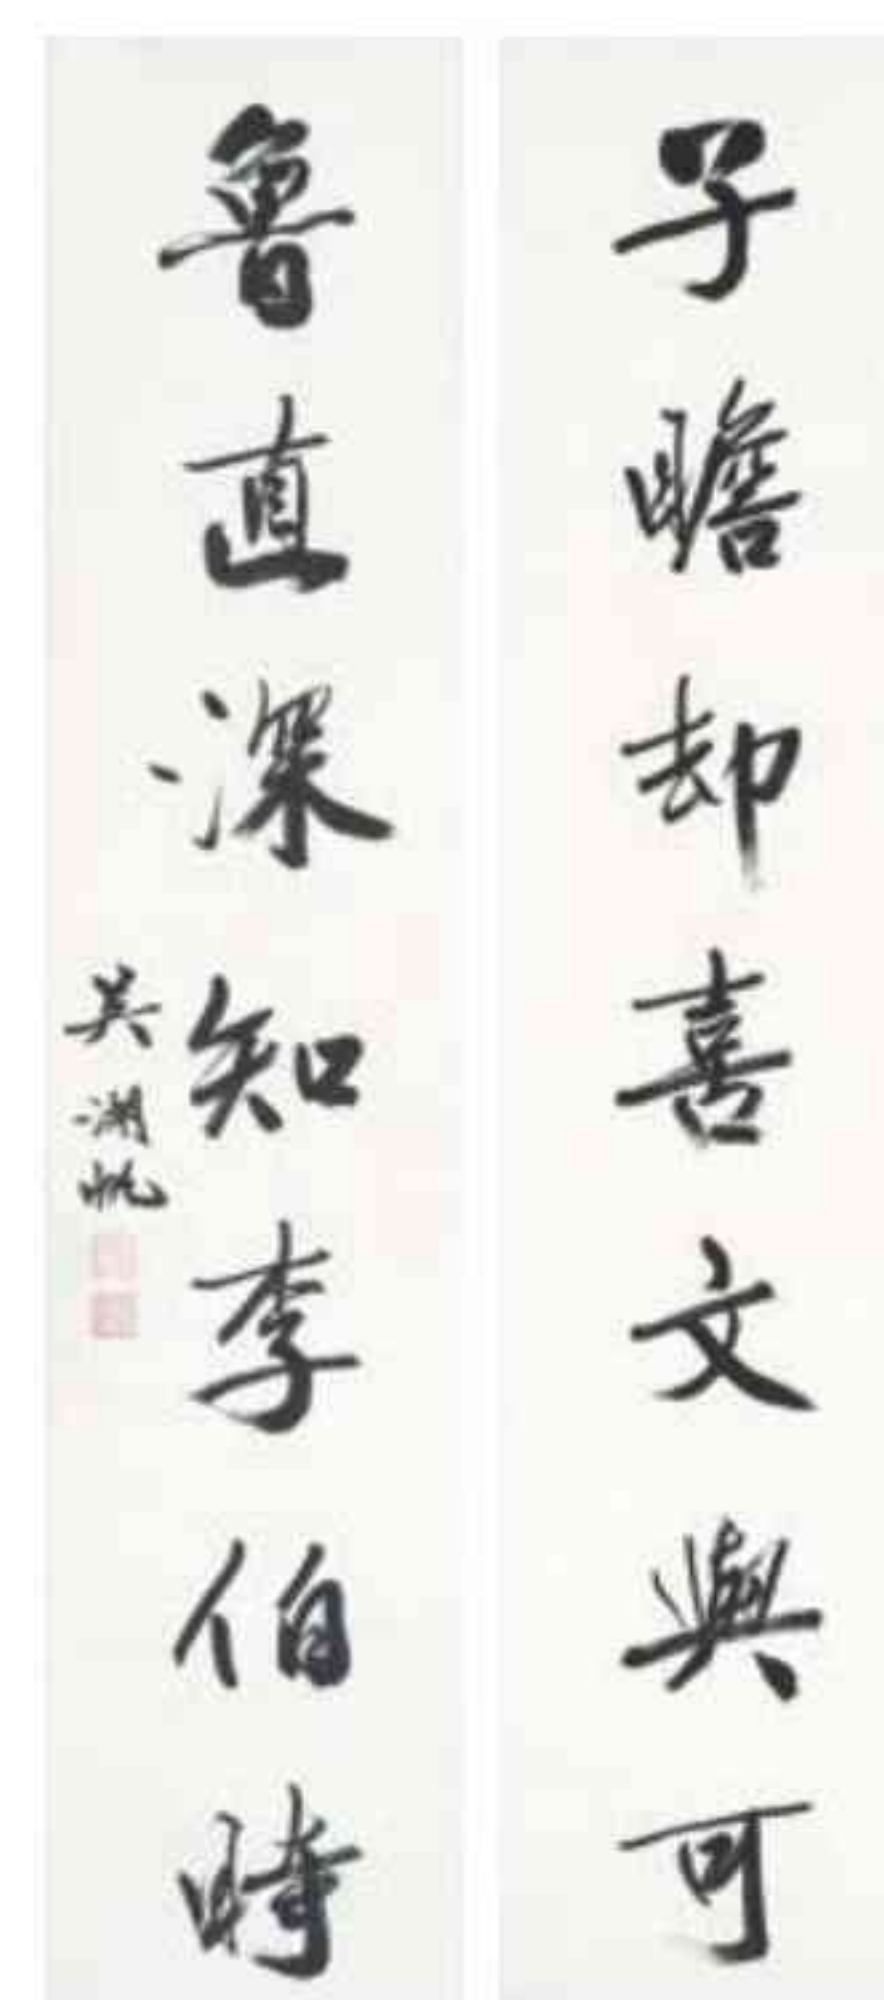 子瞻却喜文與可
魯直深知李伯時
吴湖帆